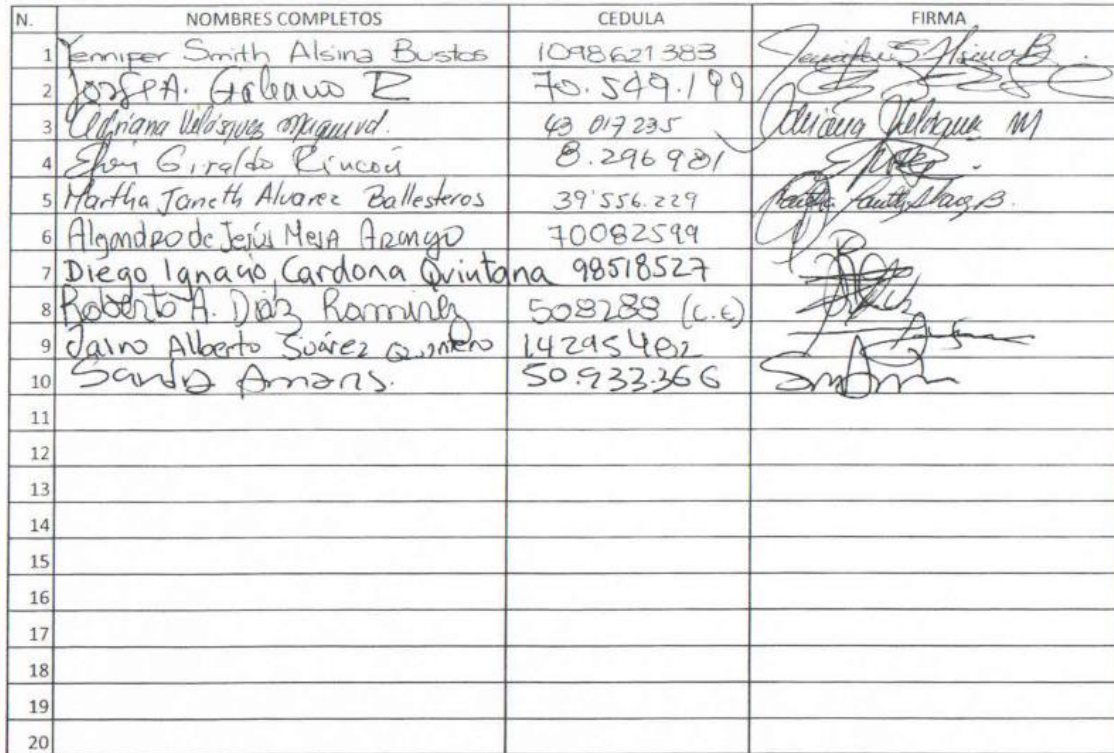 N. NOMBRES COMPLETOS CEDULA FIRMA
1 Yenniper Smith Alsina Bustos 1098621383
2 Jorge A. Galeano R 70.549.199
3 Adriana Velásquez 43 017235 Adriana Velásquez M
4 Giraldo Rincón 8.296981
5 Martha Janeth Alvarez Ballesteros 39'556.229 Martha Janeth Alvarez B.
6 Alejandro de Jesús Mesa Arango 70082599
7 Diego Ignacio Cardona Quintana 98518527
8 Roberto A. Díaz Ramirez 508288 (C.E)
9 Jairo Alberto Suárez Quintero 14295402
10 Sandra 50.933.366
11
12
13
14
15
16
17
18
19
20